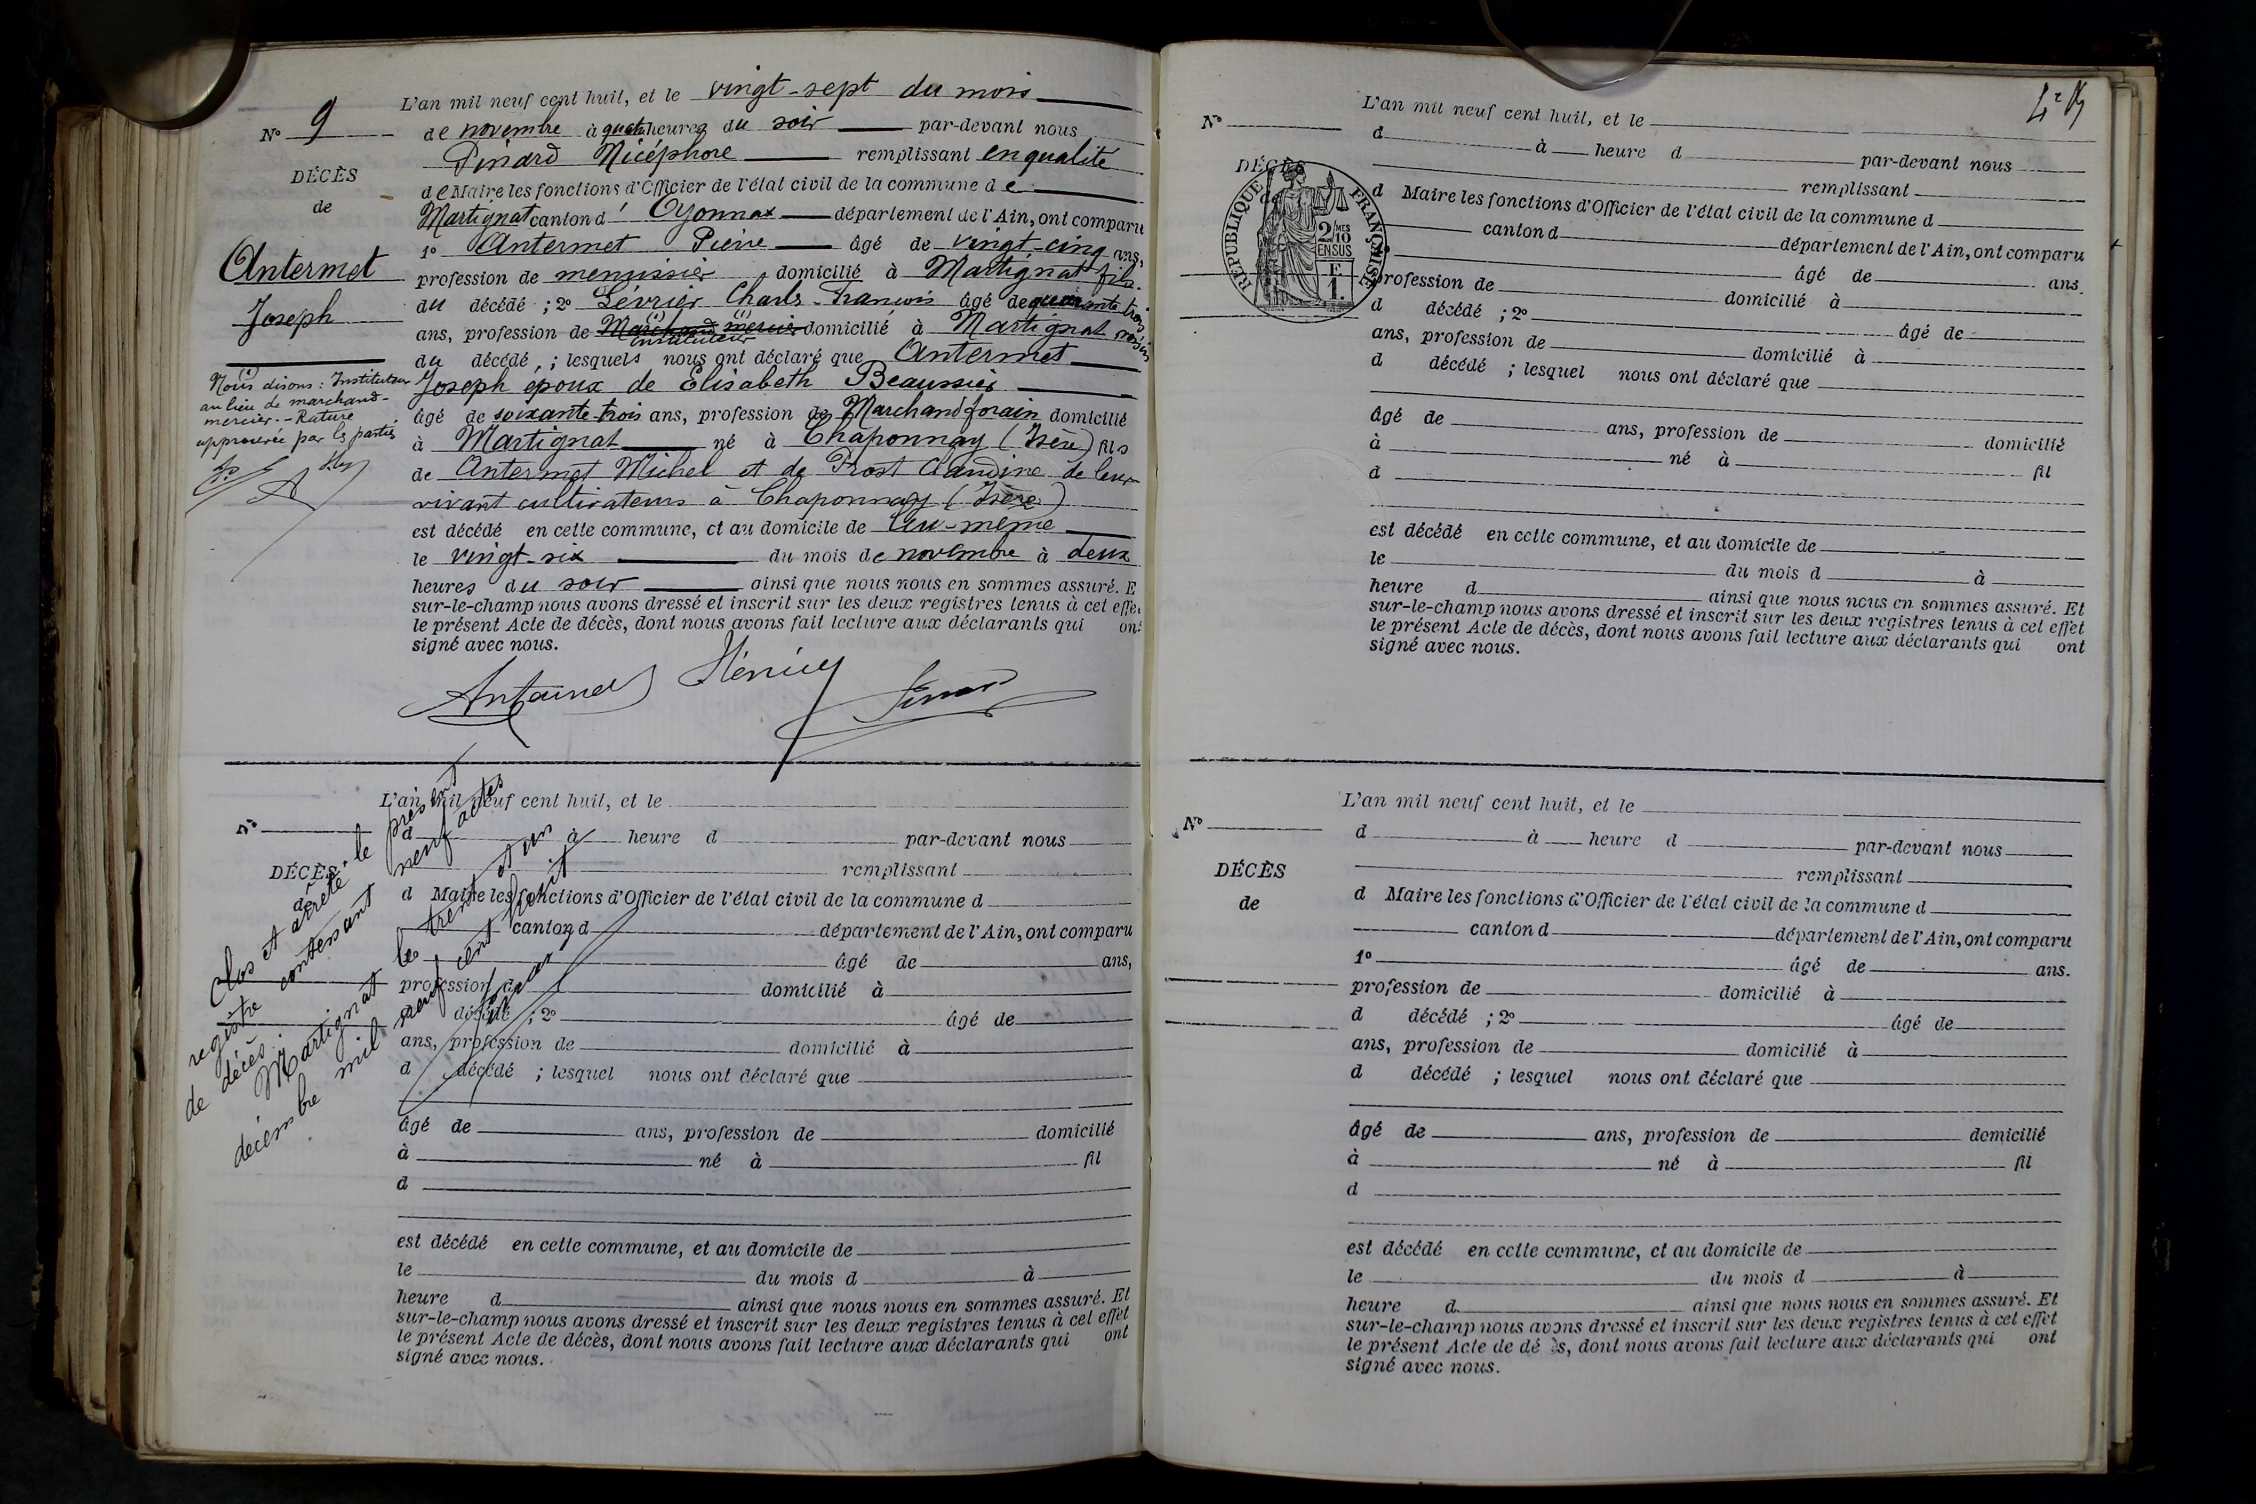 L'an mil neuf cent huit, et le vingt-sept du mois
N° 9
de novembre à quatre heures du soir par-devant nous
Pinard Nicéphore remplissant en qualité
DÉCÈS
de Maire les fonctions d'Officier de l'état civil de la commune de
de
Martignat canton d' Oyonnax département de l'Ain, ont comparu
1° Antermet Pierre âgé de vingt-cinq ans,
Antermet
profession de menuisier domicilié à Martignat fils
Joseph
du décédé ; 2° Charles-François âgé de quarante trois
ans, profession de Marchand (1) mercier (1) domicilié à Martignat voisin
instituteur
du décédé, ; lesquels nous ont déclaré que Antermet
(1)
Nous disons : Instituteur
au lieu de marchand-
mercier.- Rature
approuvée par les parties
Joseph époux de Elisabeth Beaussier
âgé de soixante-trois ans, profession de Marchand forain domicilié
à Martignat né à Chaponnay (Isère) fils
de Antermet Michel et de Prost Claudine de leur
vivant cultivateurs à Chaponnay (Isère)
est décédé en cette commune, et au domicile de lui-même
le vingt-six du mois de novembre à deux
heures du soir ainsi que nous nous en sommes assuré. E
sur-le-champ nous avons dressé et inscrit sur les deux registres tenus à cet effe
le présent Acte de décès, dont nous avons fait lecture aux déclarants qui on
signé avec nous.
L'an mil neuf cent huit, et le
N°
d à heure d par-devant nous
DÉCÈS
remplissant
de
d Maire les fonctions d'Officier de l'état civil de la commune d
canton d département de l'Ain, ont comparu
âgé de ans,
profession de domicilié à
d décédé ; 2° âgé de
ans, profession de domicilié à
d décédé ; lesquel nous ont déclaré que
âgé de ans, profession de domicilié
à né à fil
d
est décédé en cette commune, et au domicile de
le du mois d à
heure d ainsi que nous nous en sommes assuré. Et
sur-le-champ nous avons dressé et inscrit sur les deux registres tenus à cet effet
le présent Acte de décès, dont nous avons fait lecture aux déclarants qui ont
signé avec nous.
Clos et arrêté le présent
registre contenant neuf actes
de décès.
Martignat les trente et un
décembre mil neuf cent huit
L'an mil neuf cent huit, et le
N°
d à heure d par-devant nous
DÉCÈS
de
remplissant
d Maire les fonctions d'Officier de l'état civil de la commune d
canton d département de l'Ain, ont comparu
âgé de ans.
profession de domicilié à
d décédé ; 2° âgé de
ans, profession de domicilié à
d décédé ; lesquel nous ont déclaré que
âgé de ans, profession de domicilié
à né à fil
d
est décédé en cette commune, et au domicile de
le du mois d à
heure d ainsi que nous nous en sommes assuré. Et
sur-le-champ nous avons dressé et inscrit sur les deux registres tenus à cet effet
le présent Acte de décès, dont nous avons fait lecture aux déclarants qui ont
signé avec nous.
RÉPUBLIQUE FRANÇAISE
2 MES
10
EN SUS
E
1.
L'an mil neuf cent huit, et le
N°
d à heure d par-devant nous
DÉCÈS
remplissant
de
d Maire les fonctions d'Officier de l'état civil de la commune d
canton d département de l'Ain, ont comparu
1° âgé de ans.
profession de domicilié à
d décédé ; 2° âgé de
ans, profession de domicilié à
d décédé ; lesquel nous ont déclaré que
âgé de ans, profession de domicilié
à né à fil
d
est décédé en cette commune, et au domicile de
le du mois d à
heure d. ainsi que nous nous en sommes assuré. Et
sur-le-champ nous avons dressé et inscrit sur les deux registres tenus à cet effet
le présent Acte de dé ès, dont nous avons fait lecture aux déclarants qui ont
signé avec nous.